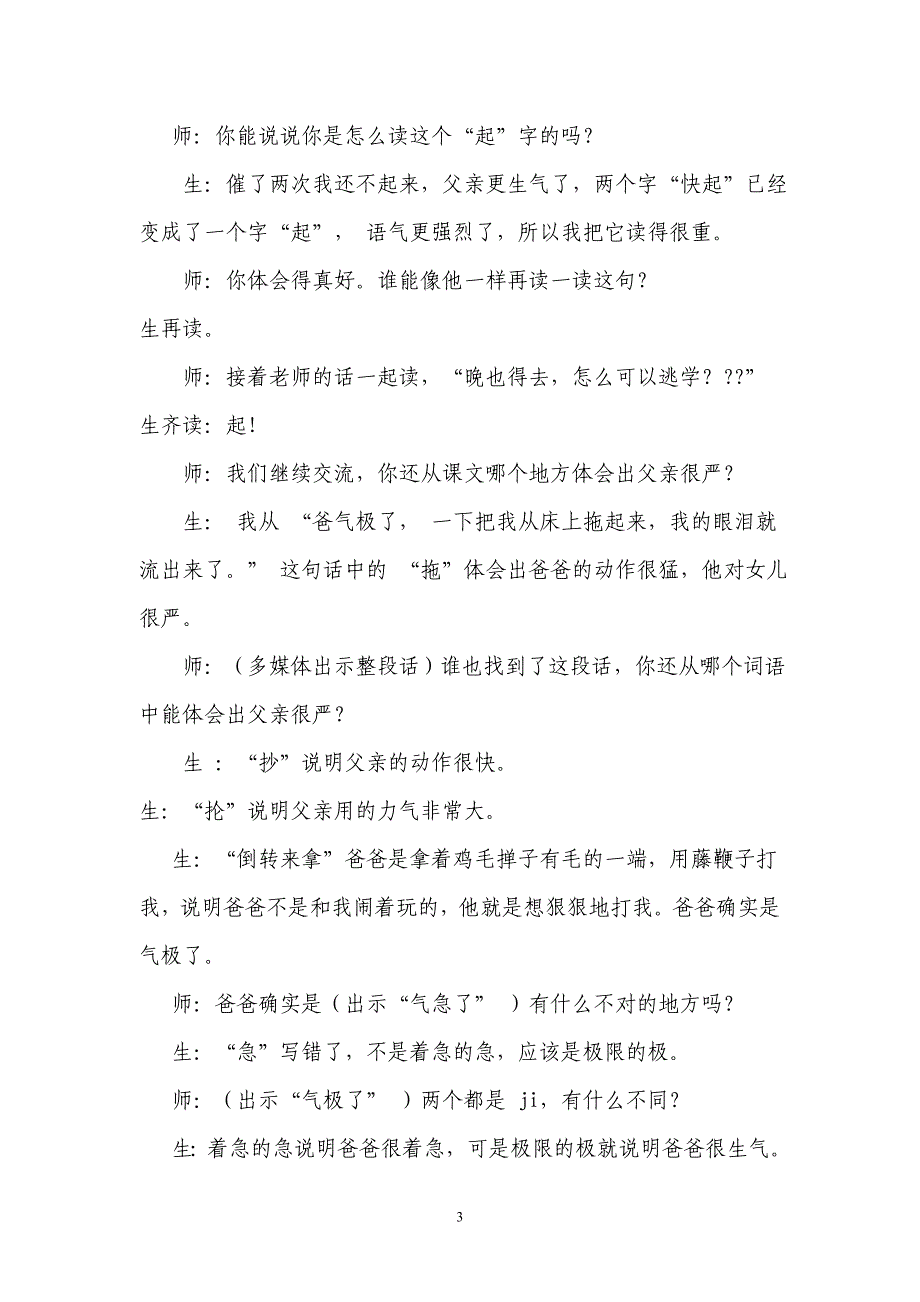 师：你能说说你是怎么读这个“起”字的吗？
生：催了两次我还不起来，父亲更生气了，两个字“快起”已经
变成了一个字“起”， 语气更强烈了，所以我把它读得很重。
师：你体会得真好。谁能像他一样再读一读这句？
生再读。
师：接着老师的话一起读，“晚也得去，怎么可以逃学？??”
生齐读：起！
师：我们继续交流，你还从课文哪个地方体会出父亲很严？
生： 我从 “爸气极了， 一下把我从床上拖起来，我的眼泪就
流出来了。” 这句话中的 “拖”体会出爸爸的动作很猛，他对女儿
很严。
师：（多媒体出示整段话）谁也找到了这段话，你还从哪个词语
中能体会出父亲很严？
生 ：“抄”说明父亲的动作很快。
生：“抡”说明父亲用的力气非常大。
生：“倒转来拿”爸爸是拿着鸡毛掸子有毛的一端，用藤鞭子打
我，说明爸爸不是和我闹着玩的，他就是想狠狠地打我。爸爸确实是
气极了。
师：爸爸确实是（出示“气急了” ）有什么不对的地方吗？
生：“急”写错了，不是着急的急，应该是极限的极。
师：（出示“气极了” ）两个都是 ji，有什么不同？
生：着急的急说明爸爸很着急，可是极限的极就说明爸爸很生气。
3